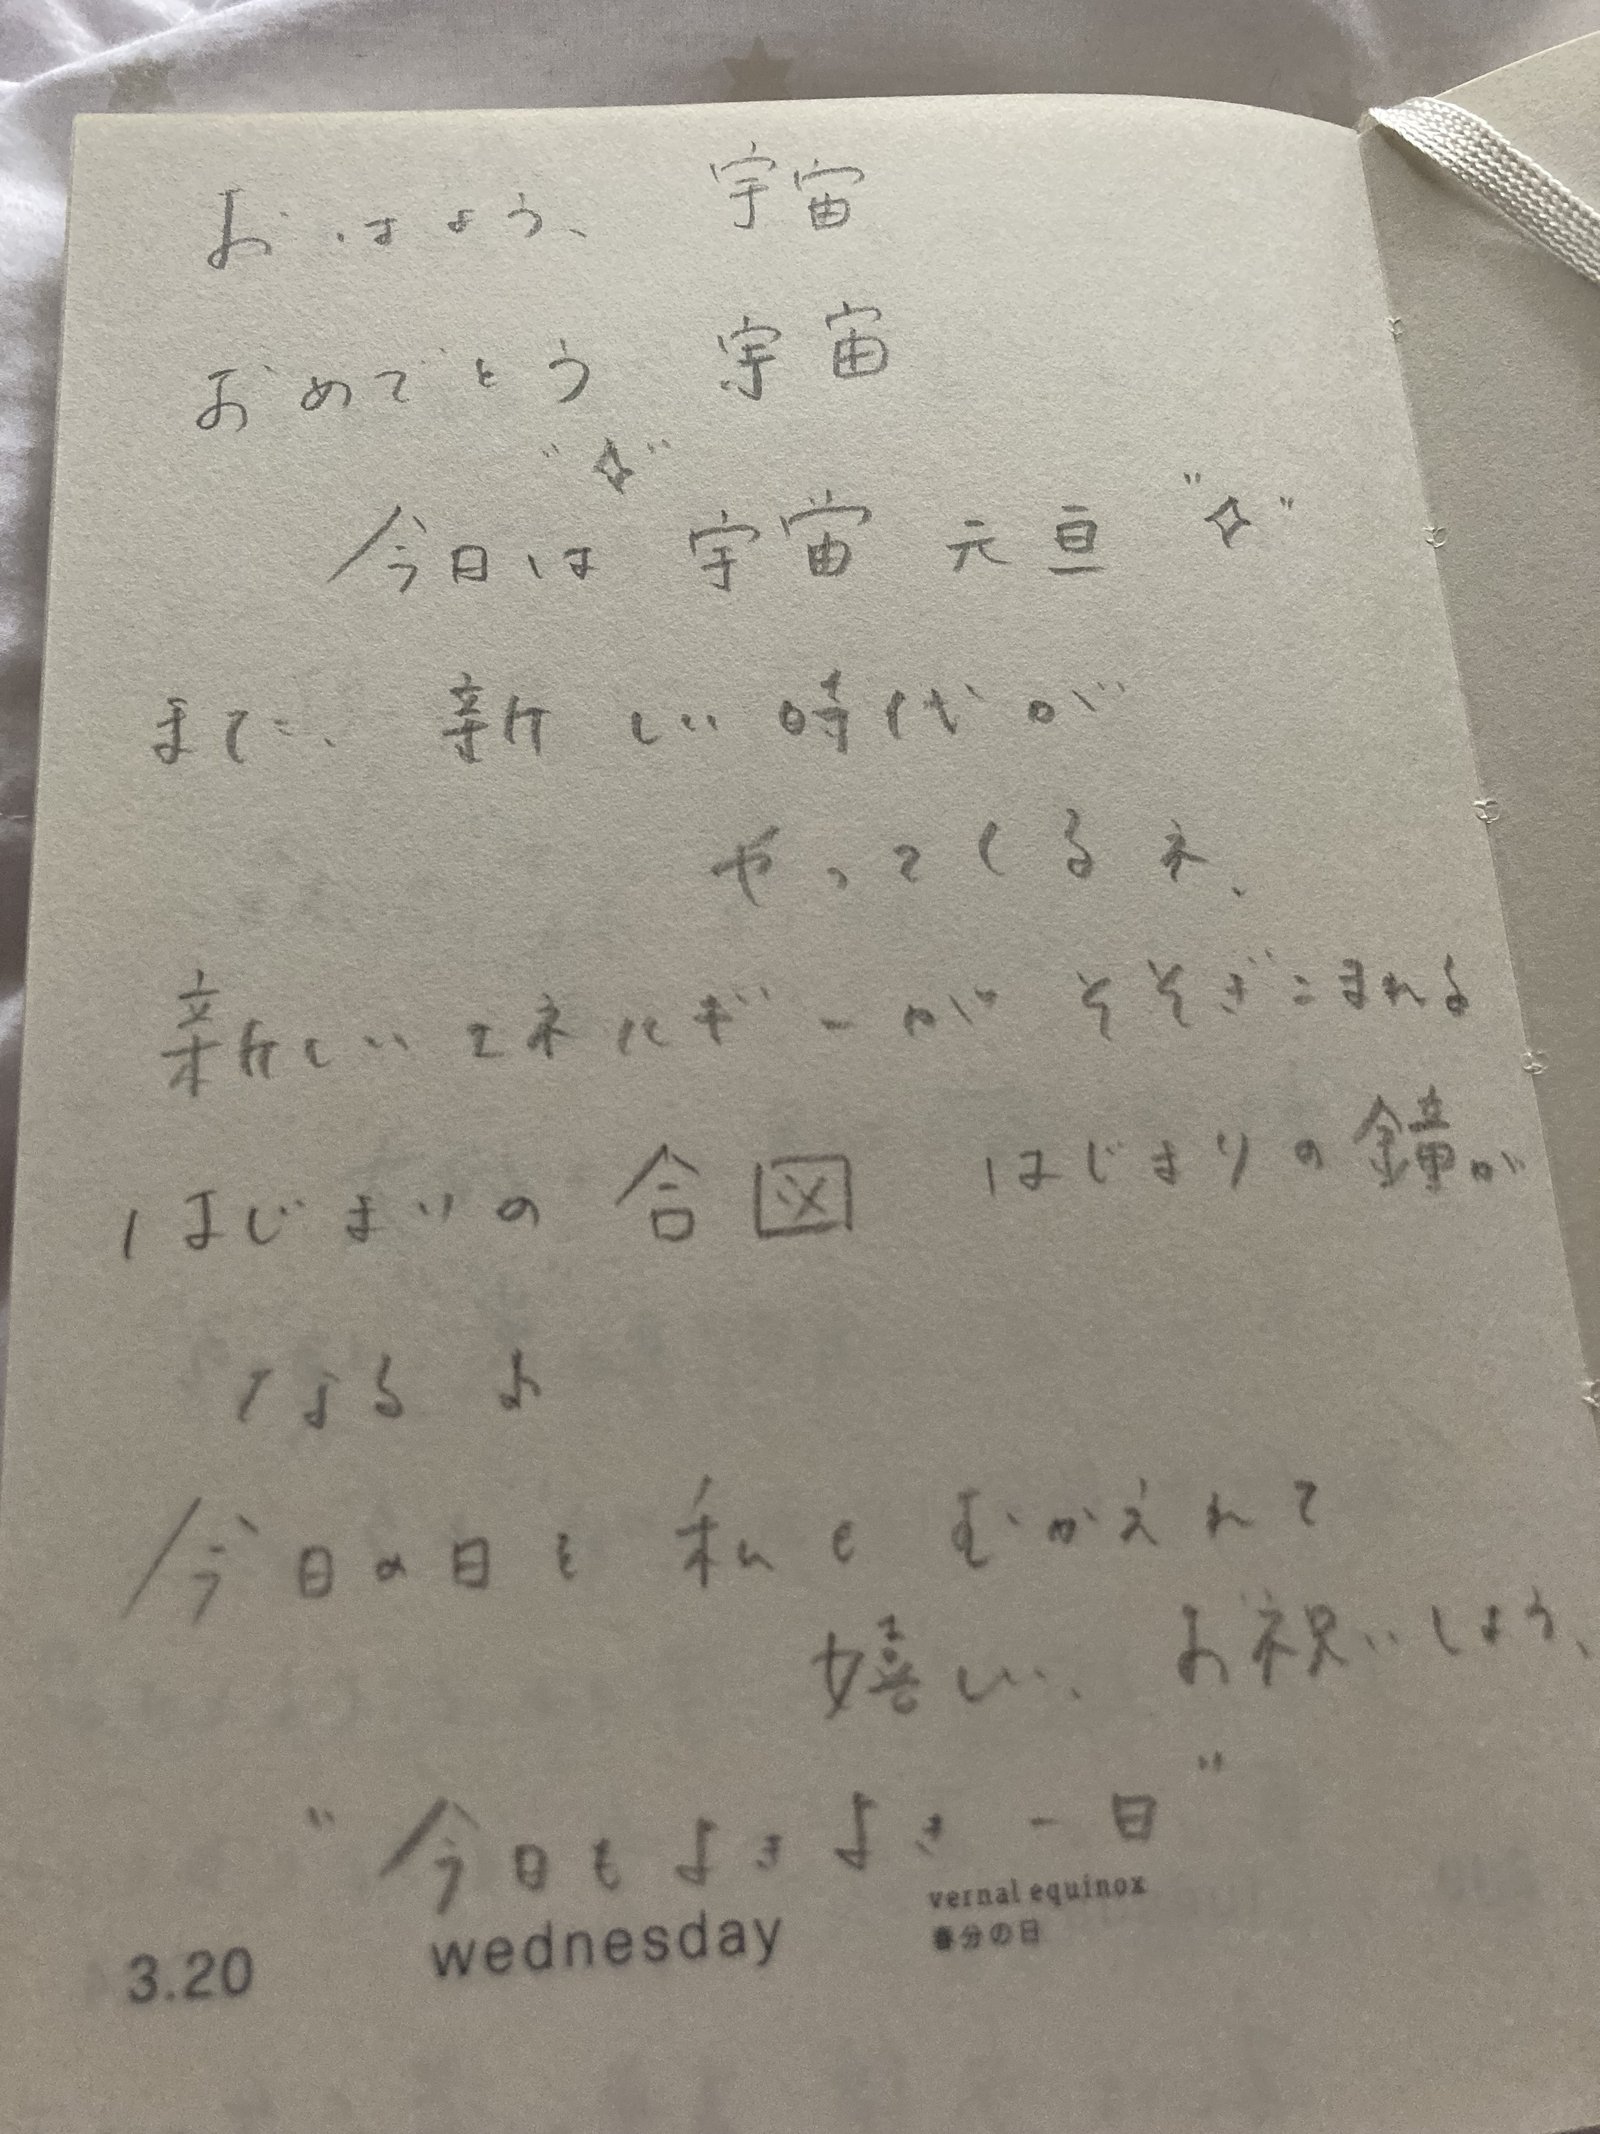 おはよう、宇宙
おめでとう 宇宙
今日は 宇宙 元旦
また、新しい時代が
やってくるネ、
新しいエネルギーが そそぎこまれる
はじまりの 合図 はじまりの鐘が
なるよ
今日の日を 私も むかえれて
嬉しい、お祝いしよう、
"今日もよきよき一日"
vernal equinox
春分の日
3.20 wednesday